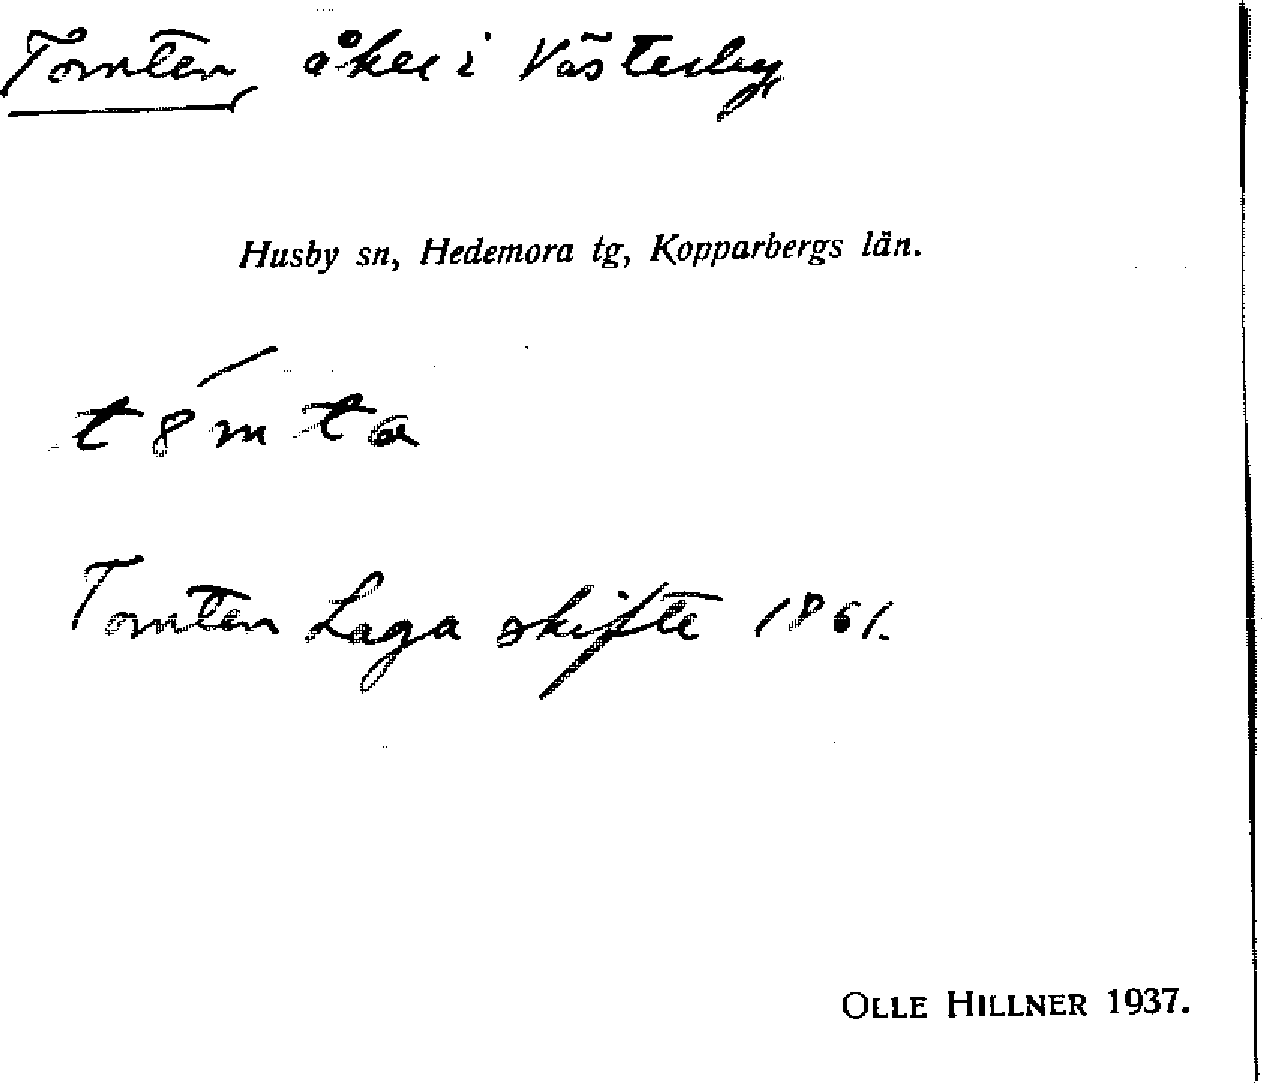 Tomten, åker i Västerby
Husby sn, Hedemora tg, Kopparbergs län.
t8́mta
Tomten Laga skifte 1861.
OLLE HILLNER 1937.